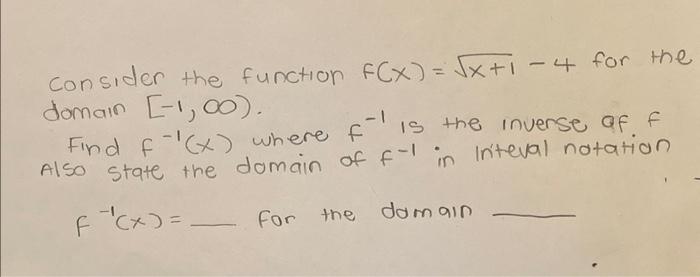 consider the function f(x) = √x+1 - 4 for the
domain [-1, ∞).
Find f⁻¹(x) where f⁻¹ is the inverse of f
Also state the domain of f⁻¹ in inteval notation
f⁻¹(x) = ___ for the domain ___